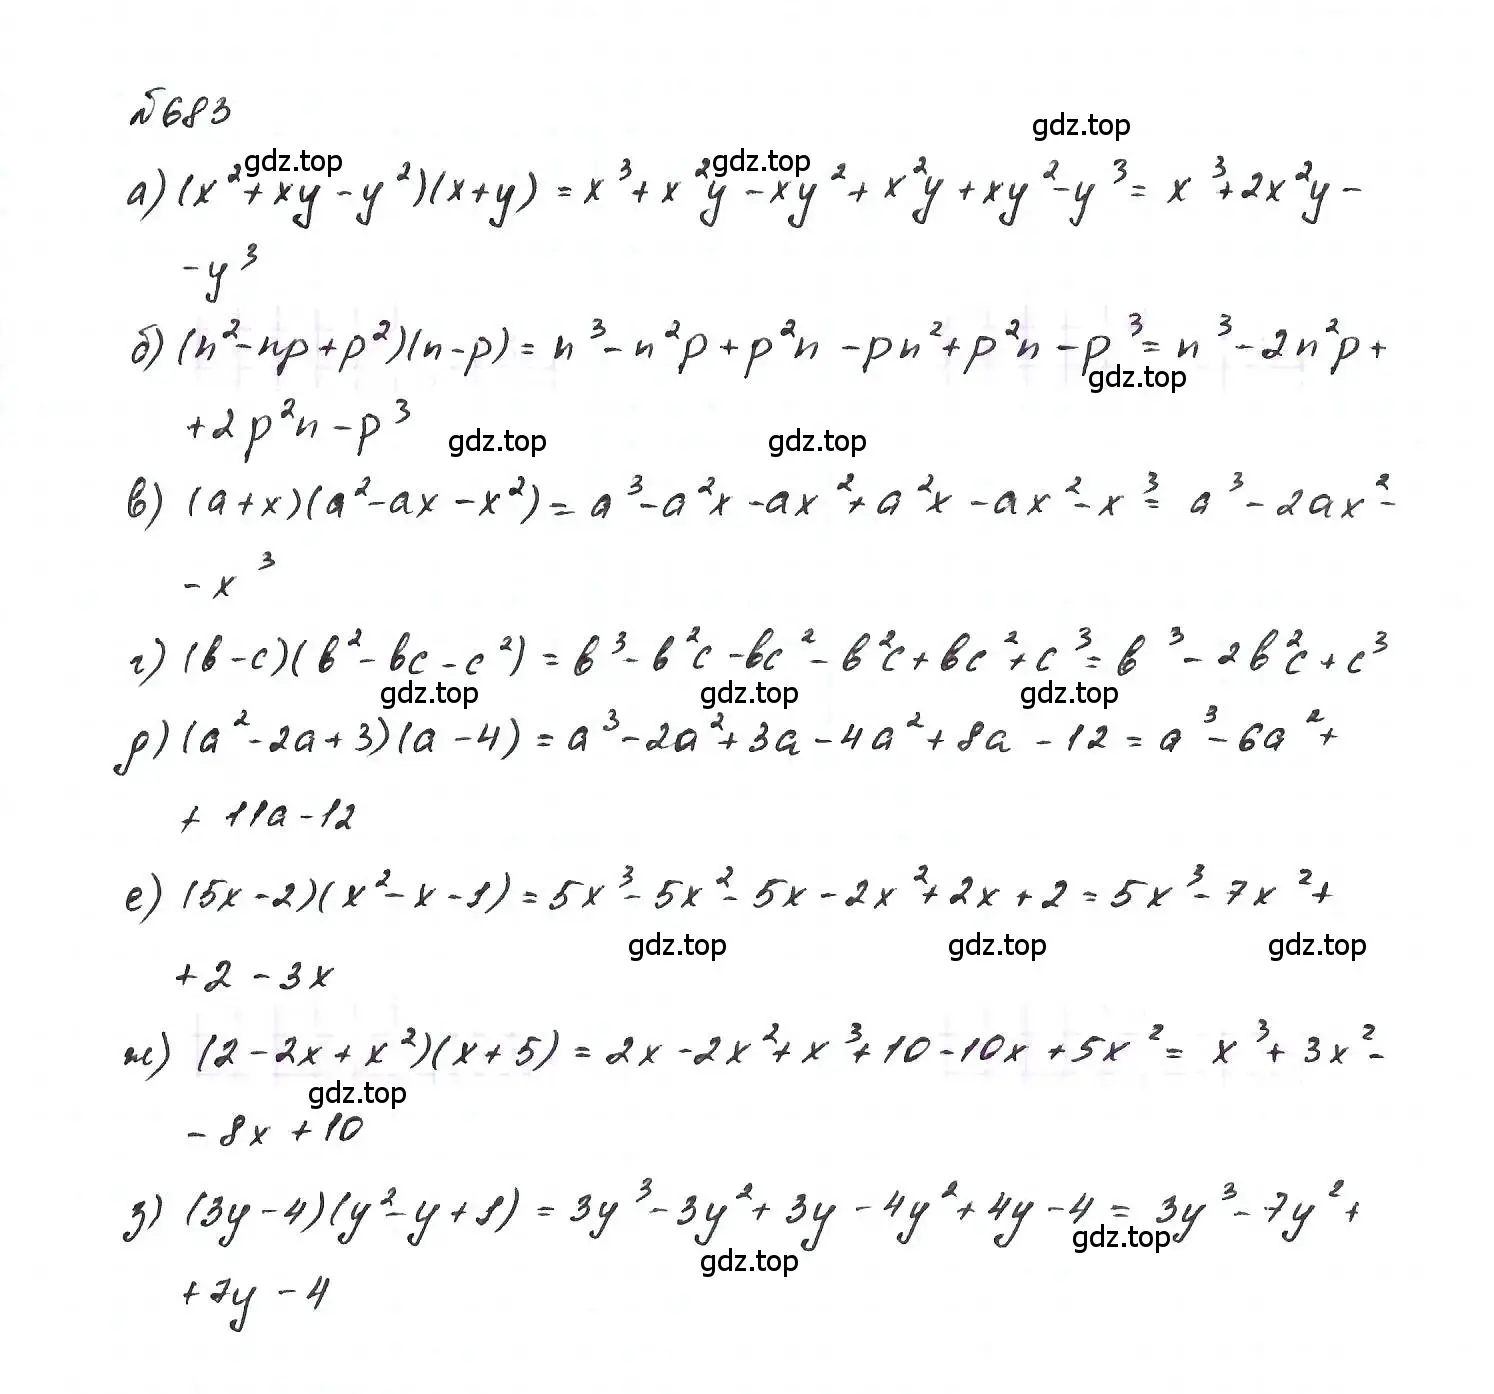 №683
gdz.top
а) (x²+xy-y²)(x+y) = x³+x²y-xy²+x²y+xy²-y³= x³+2x²y-
gdz.top gdz.top
-y³
б) (n²-np+p²)(n-p) = n³-n²p+p²n-pn²+p²n-p³= n³-2n²p+
gdz.top
+2p²n-p³
gdz.top gdz.top
в) (a+x)(a²-ax-x²) = a³-a²x-ax²+a²x-ax²-x³= a³-2ax²-
-x³
г) (b-c)(b²-bc-c²) = b³-b²c-bc²-b²c+bc²+c³= b³-2b²c+c³
gdz.top gdz.top gdz.top
д) (a²-2a+3)(a-4) = a³-2a²+3a-4a²+8a-12 = a³-6a²+
+ 11a-12
е) (5x-2)(x²-x-1) = 5x³-5x²-5x-2x²+2x+2 = 5x³-7x²+
gdz.top gdz.top gdz.top
+2-3x
ж) (2-2x+x²)(x+5) = 2x-2x²+x³+10-10x+5x²= x³+3x²-
gdz.top
-8x+10
з) (3y-4)(y²-y+1) = 3y³-3y²+3y-4y²+4y-4 = 3y³-7y²+
gdz.top gdz.top
+7y-4